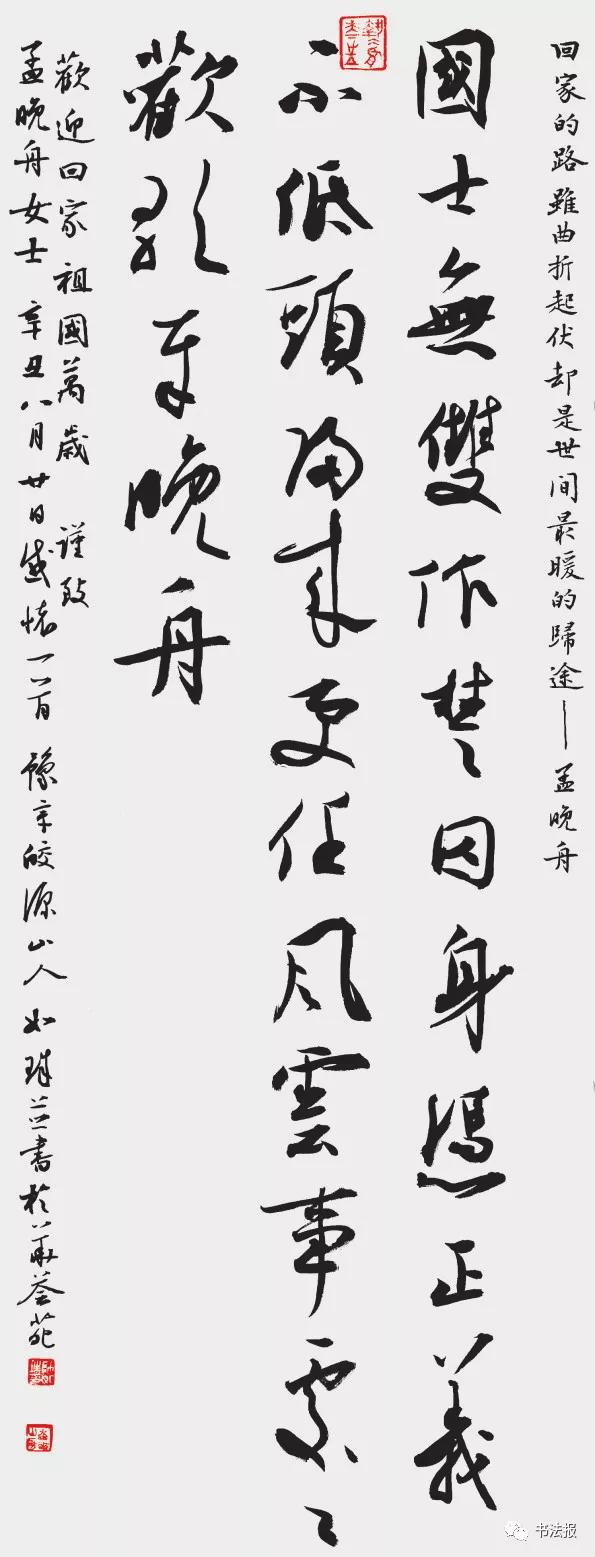 回家的路雖曲折起伏却是世间最暖的歸途——孟晚舟
國士無雙作楚囚身憑正義
不低頭歸來更任風雲事處々
歡歌晚舟
歡迎回家 祖國萬歲 謹致
孟晚舟女士 辛丑八月廿日感懷一首 豫章皎源山人 如璋并書於荃苑
书法报